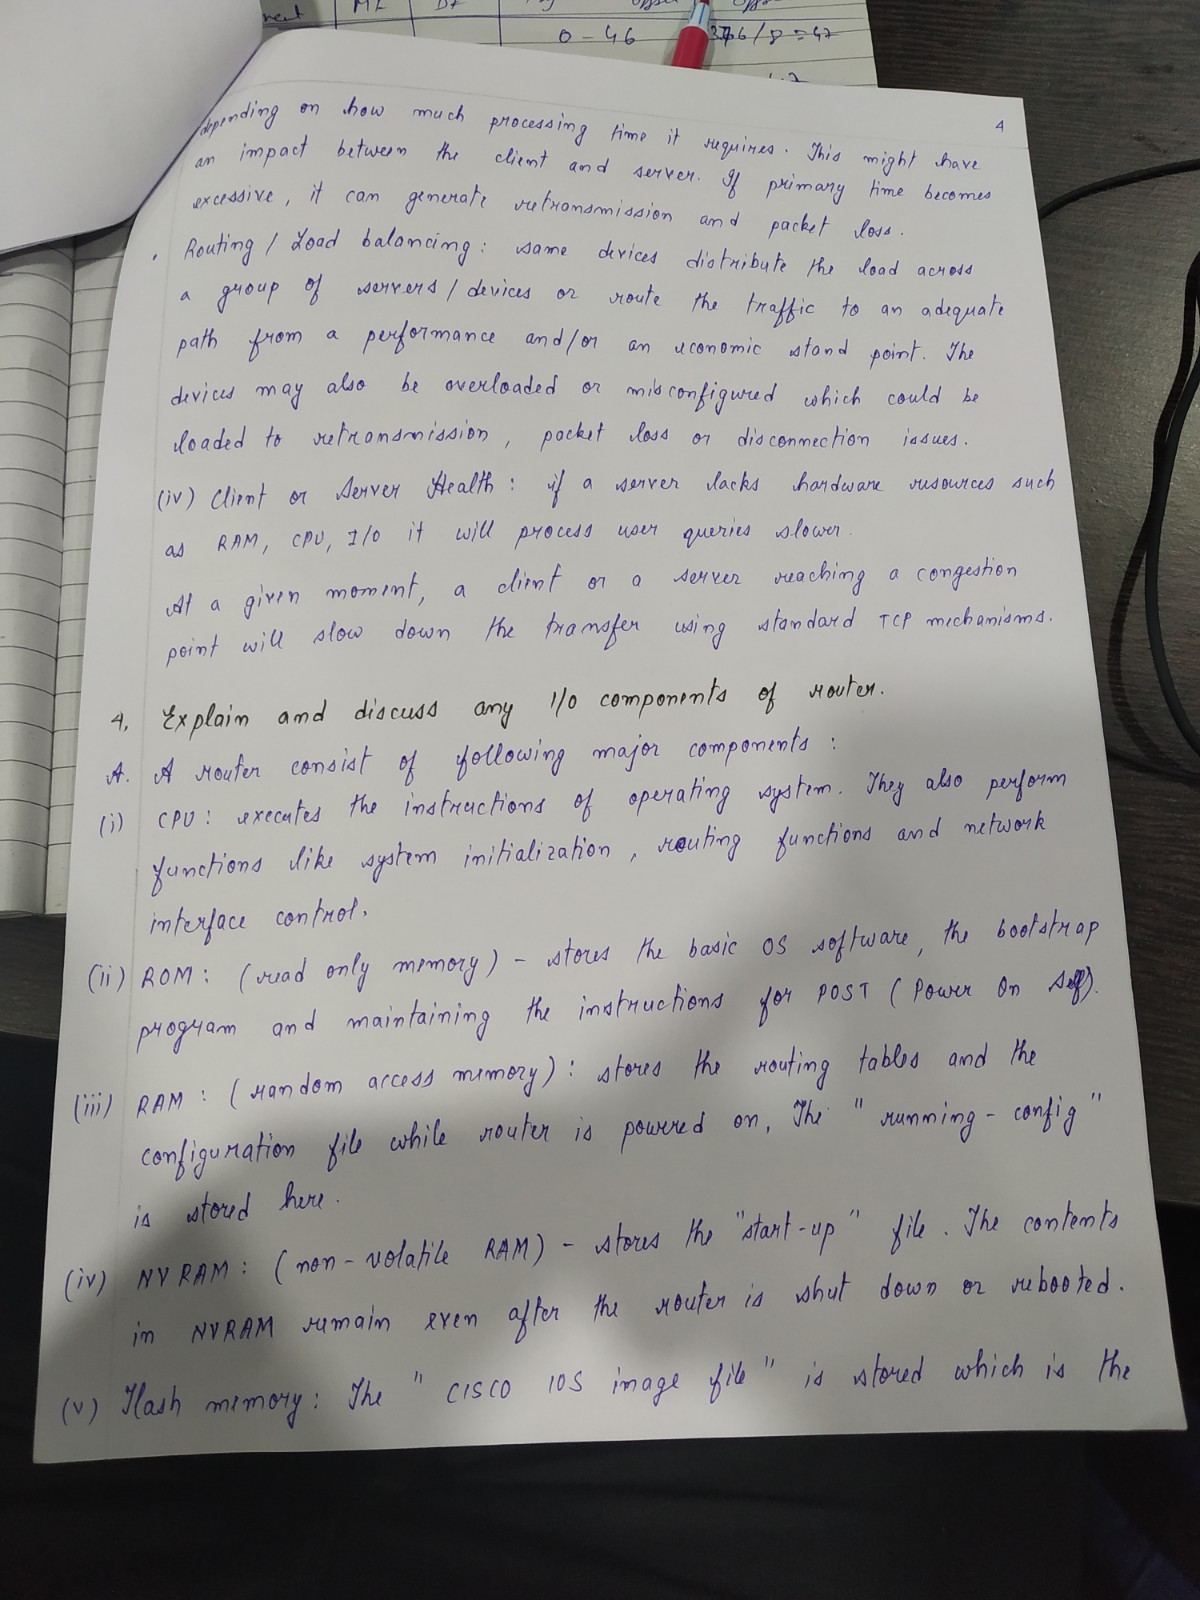 0 - 46
376/8 = 47
4
depending on how much processing time it requires. This might have
an impact between the client and server. If primary time becomes
excessive, it can generate retransmission and packet loss.
. Routing / Load balancing : same devices distribute the load across
a group of servers / devices or route the traffic to an adequate
path from a performance and/or an economic stand point. The
devices may also be overloaded or misconfigured which could be
loaded to retransmission, packet loss or disconnection issues.
(iv) Client or Server Health : if a server lacks hardware resources such
as RAM, CPU, I/O it will process user queries slower.
At a given moment, a client or a server reaching a congestion
point will slow down the transfer using standard TCP mechanisms.
4. Explain and discuss any I/O components of router.
A. A router consist of following major components :
(i) CPU : executes the instructions of operating system. They also perform
functions like system initialization, routing functions and network
interface control.
(ii) ROM : (read only memory) - stores the basic OS software, the bootstrap
program and maintaining the instructions for POST (Power On Self).
(iii) RAM : (random access memory) : stores the routing tables and the
configuration file while router is powered on, The "running - config"
is stored here.
(iv) NVRAM : (non-volatile RAM) - stores the "start-up" file. The contents
in NVRAM remain even after the router is shut down or rebooted.
(v) Flash memory : The "CISCO IOS image file" is stored which is the